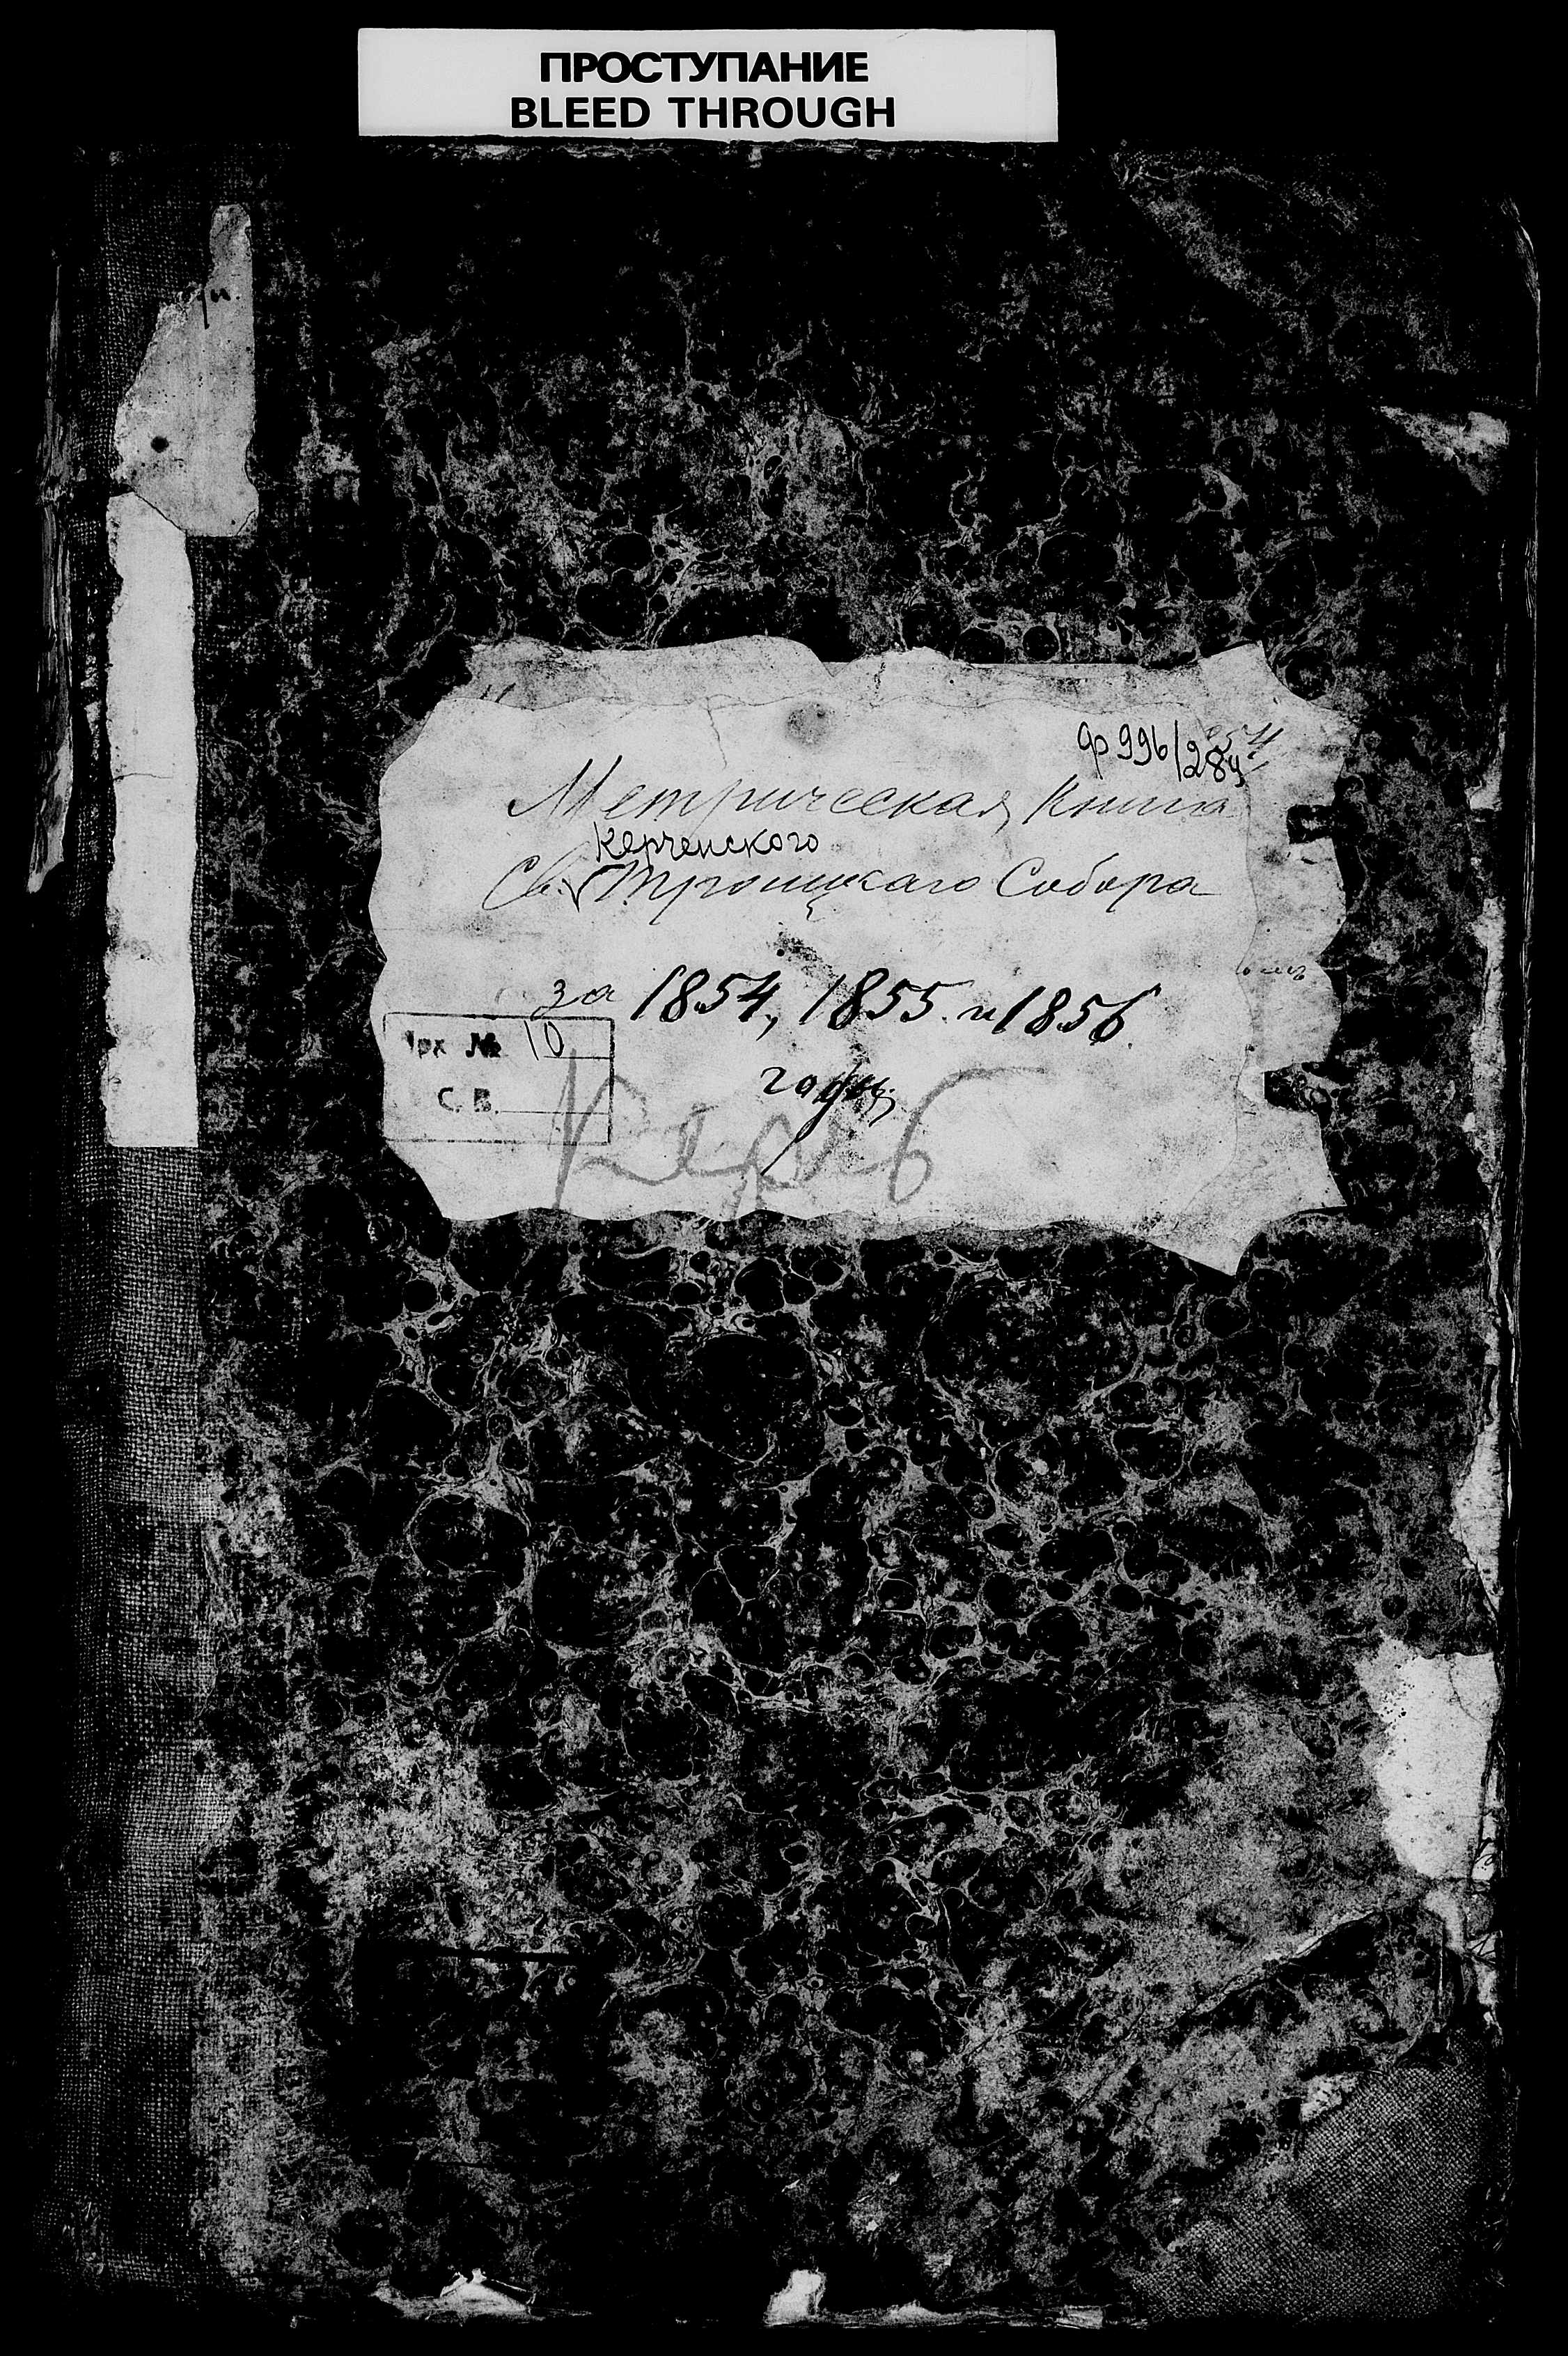 ПРОСТУПАНИЕ
BLEED THROUGH
ф 996/284
Метрическая Книга
Керченского
Св. Троицкаго Собора
за 1854, 1855. и 1856.
годы
Арх № 10
С. В.
Керчь